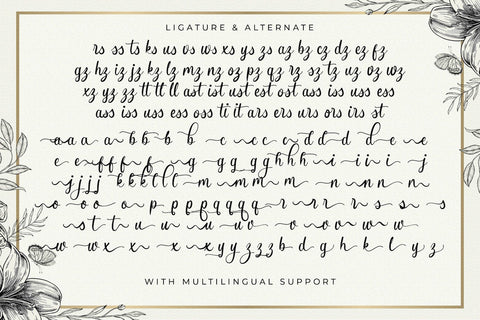 LIGATURE & ALTERNATE
rs ss ts ks us os ws xs ys zs az bz cz dz ez fz
gz hz iz jz kz lz mz nz oz pz qz rz sz tz uz oz wz
xz yz zz tt tt ll ast ist ust est ost ass iss uss ess
ass iss uss ess oss ti it ars ers urs ors irs st
a a a a b b b b c c c c d d d d e e
e e f f f f g g g g h h h i i i i j
j j j j k k k l l l m m m m n n n n
o o o o p p p q q q q r r r r s s s s
s t t u u u u u v v v v w w
w w x x x x y y z z z b d g h k l y z
WITH MULTILINGUAL SUPPORT